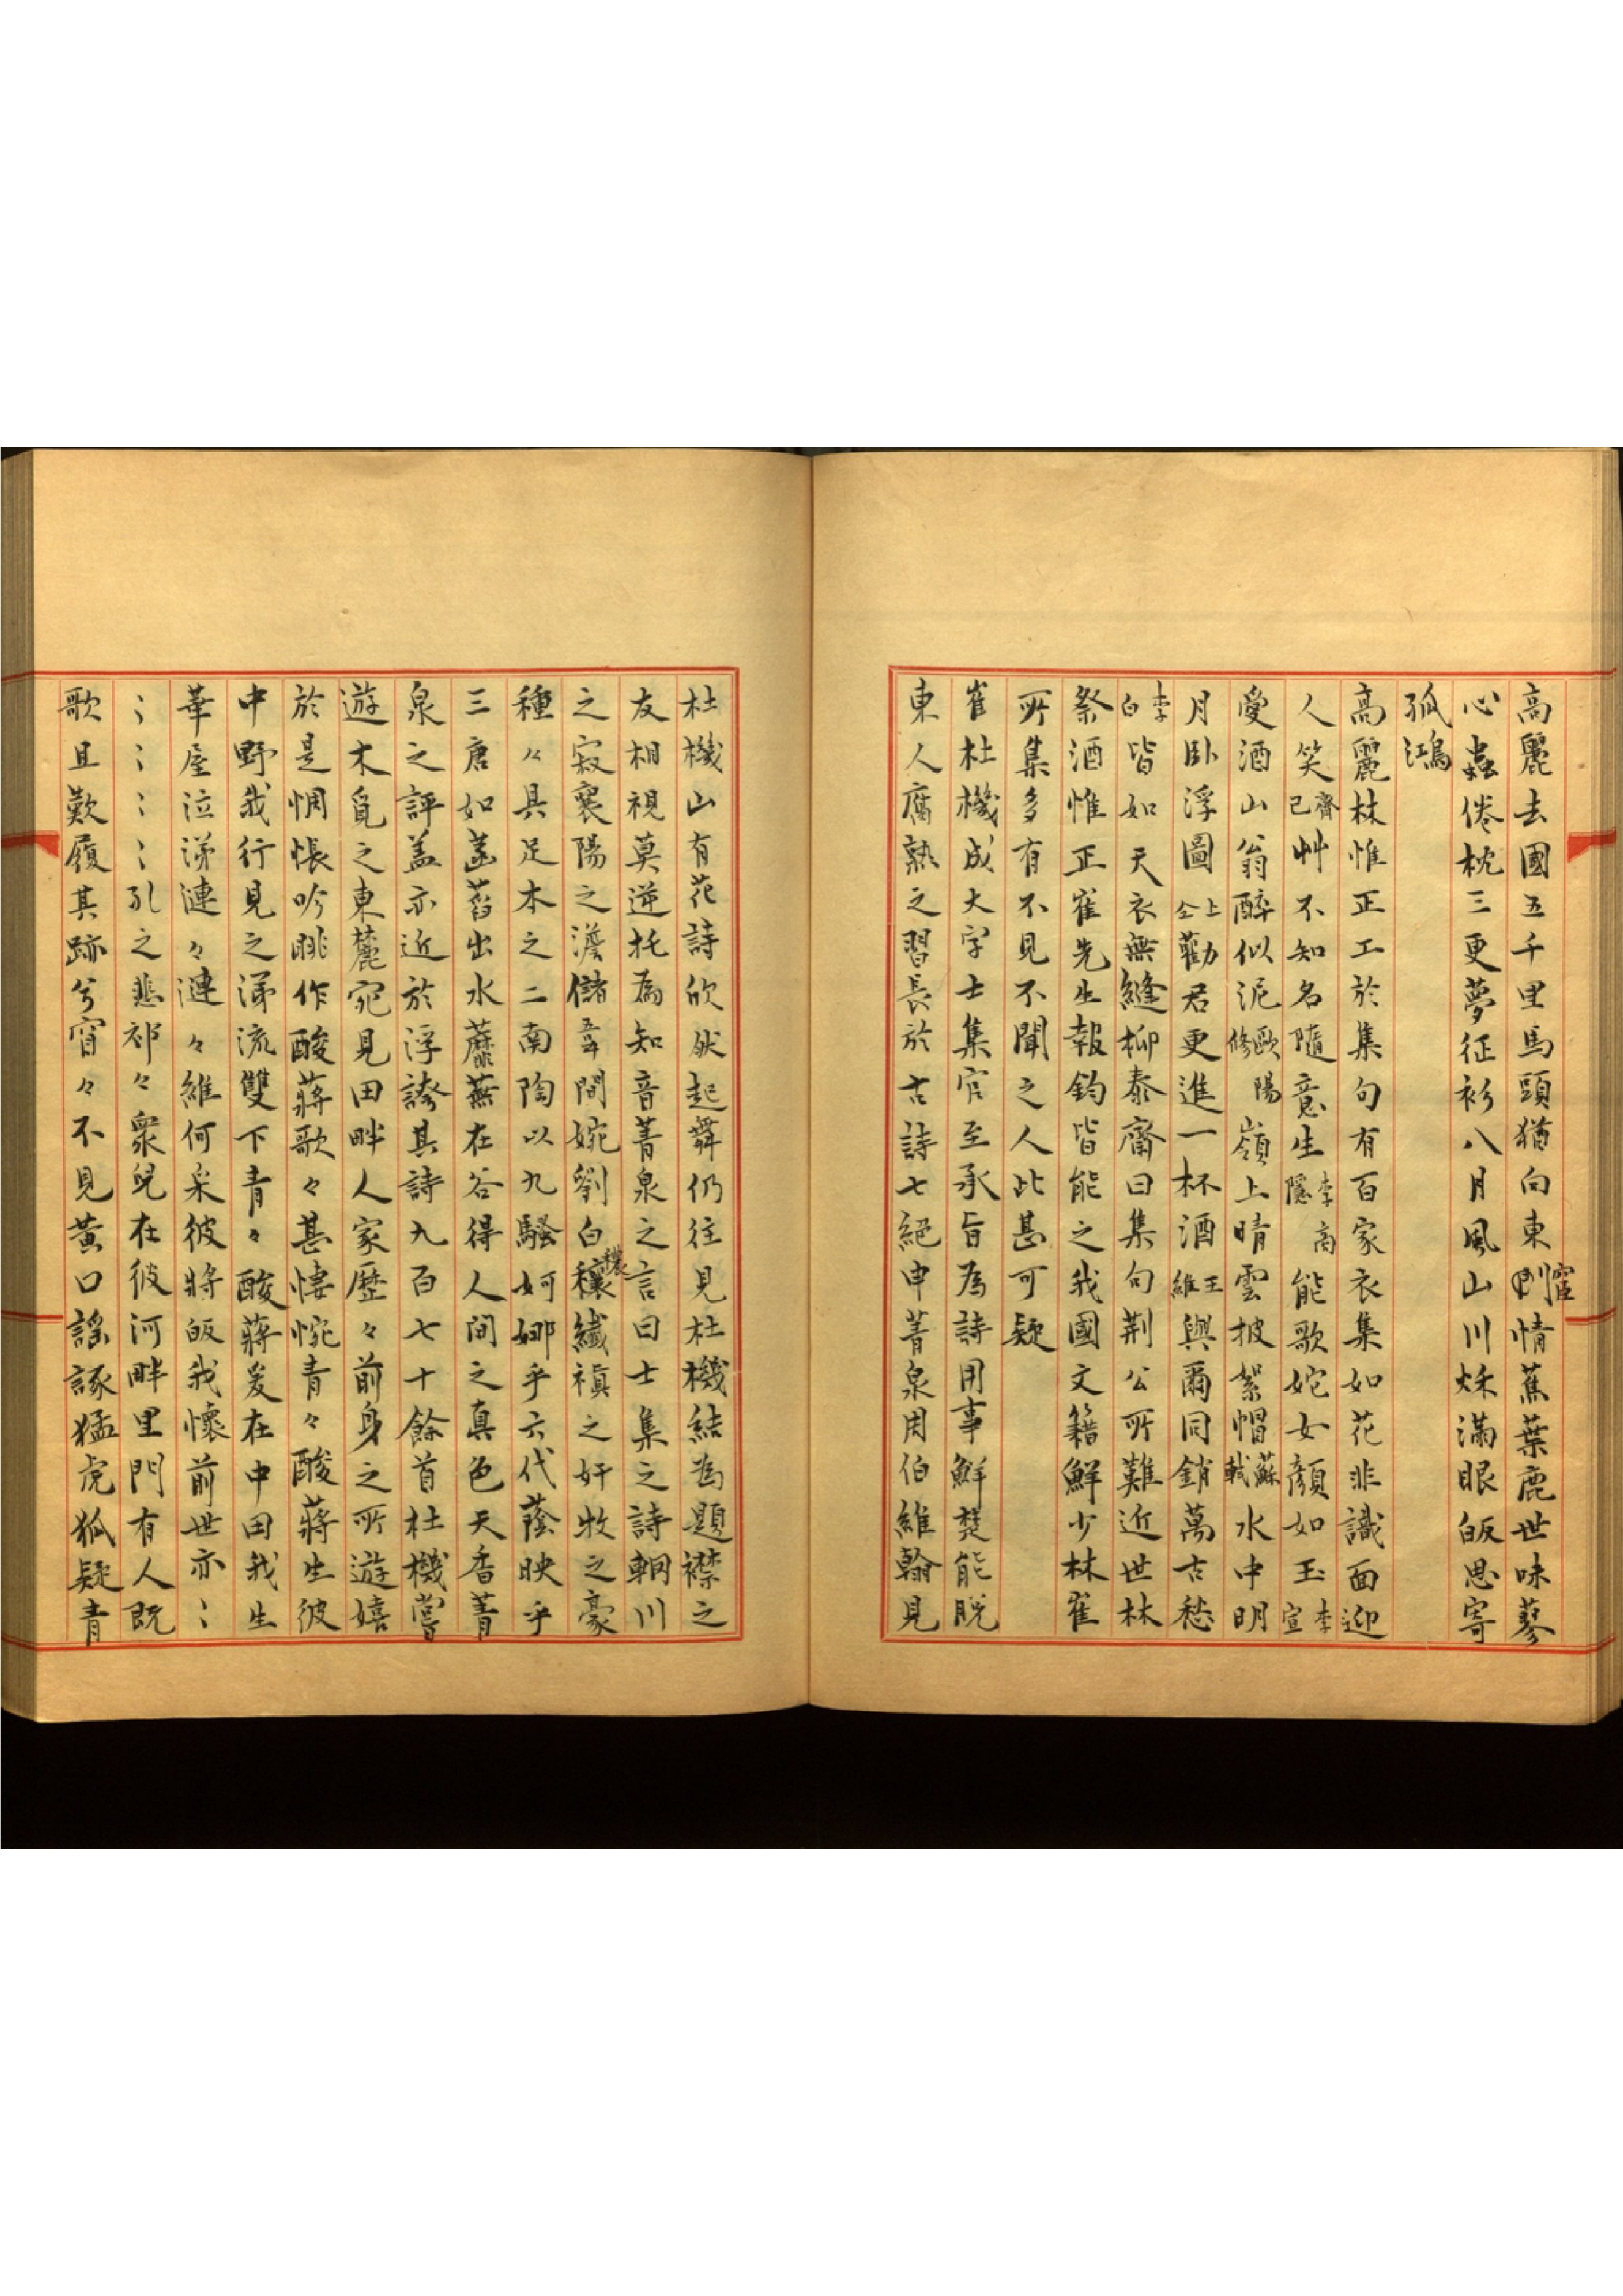 高麗去國五千里馬頭猶向東𠛬宦情蕉葉鹿世味蓼
心蟲倦枕三更夢征衫八月風山川秋滿眼皈思寄
孤鴻
高麗林惟正工於集句有百家衣集如花非識面迎
人笑齊己艸不知名隨意生李高隱能歌姹女顏如玉李宣
愛酒山翁醉似泥歐陽修嶺上晴雲披絮帽蘇軾水中明
月臥浮圖上仝勸君更進一杯酒王維與爾同銷萬古愁
李白皆如天衣無縫柳泰齋曰集句荊公所難近世林
祭酒惟正崔先生報鈞皆能之我國文籍鮮少林崔
所集多有不見不聞之人此甚可疑
崔杜機成大字士集官至承旨為詩用事鮮楚能脫
東人腐熟之習長於古詩七絕申菁泉周伯維翰見
杜機山有花詩欣然起舞仍往見杜機結為題襟之
友相視莫逆托為知音菁泉之言曰士集之詩輞川
之寂襄陽之澹儲韋間婉劉白穰穠纖禛之奸牧之豪
種々具足本之二南陶以九騷婀娜乎六代蔭映乎
三唐如菡萏出水蘼蕪在谷得人間之真色天香菁
泉之評盖亦近於浮誇其詩九百七十餘首杜機嘗
遊木覓之東麓宛見田畔人家歷々前身之所遊嬉
於是惆悵吟眺作酸蔣歌々甚悽惋青々酸蔣生彼
中野我行見之涕流雙下青々酸蔣爰在中田我生
華屋泣涕漣々漣々維何采彼將皈我懷前世亦⺀
⺀⺀⺀⺀孔之悲祁々衆兒在彼河畔里門有人既
歌且歎履其跡兮窅々不見黃口謠諑猛虎狐疑青